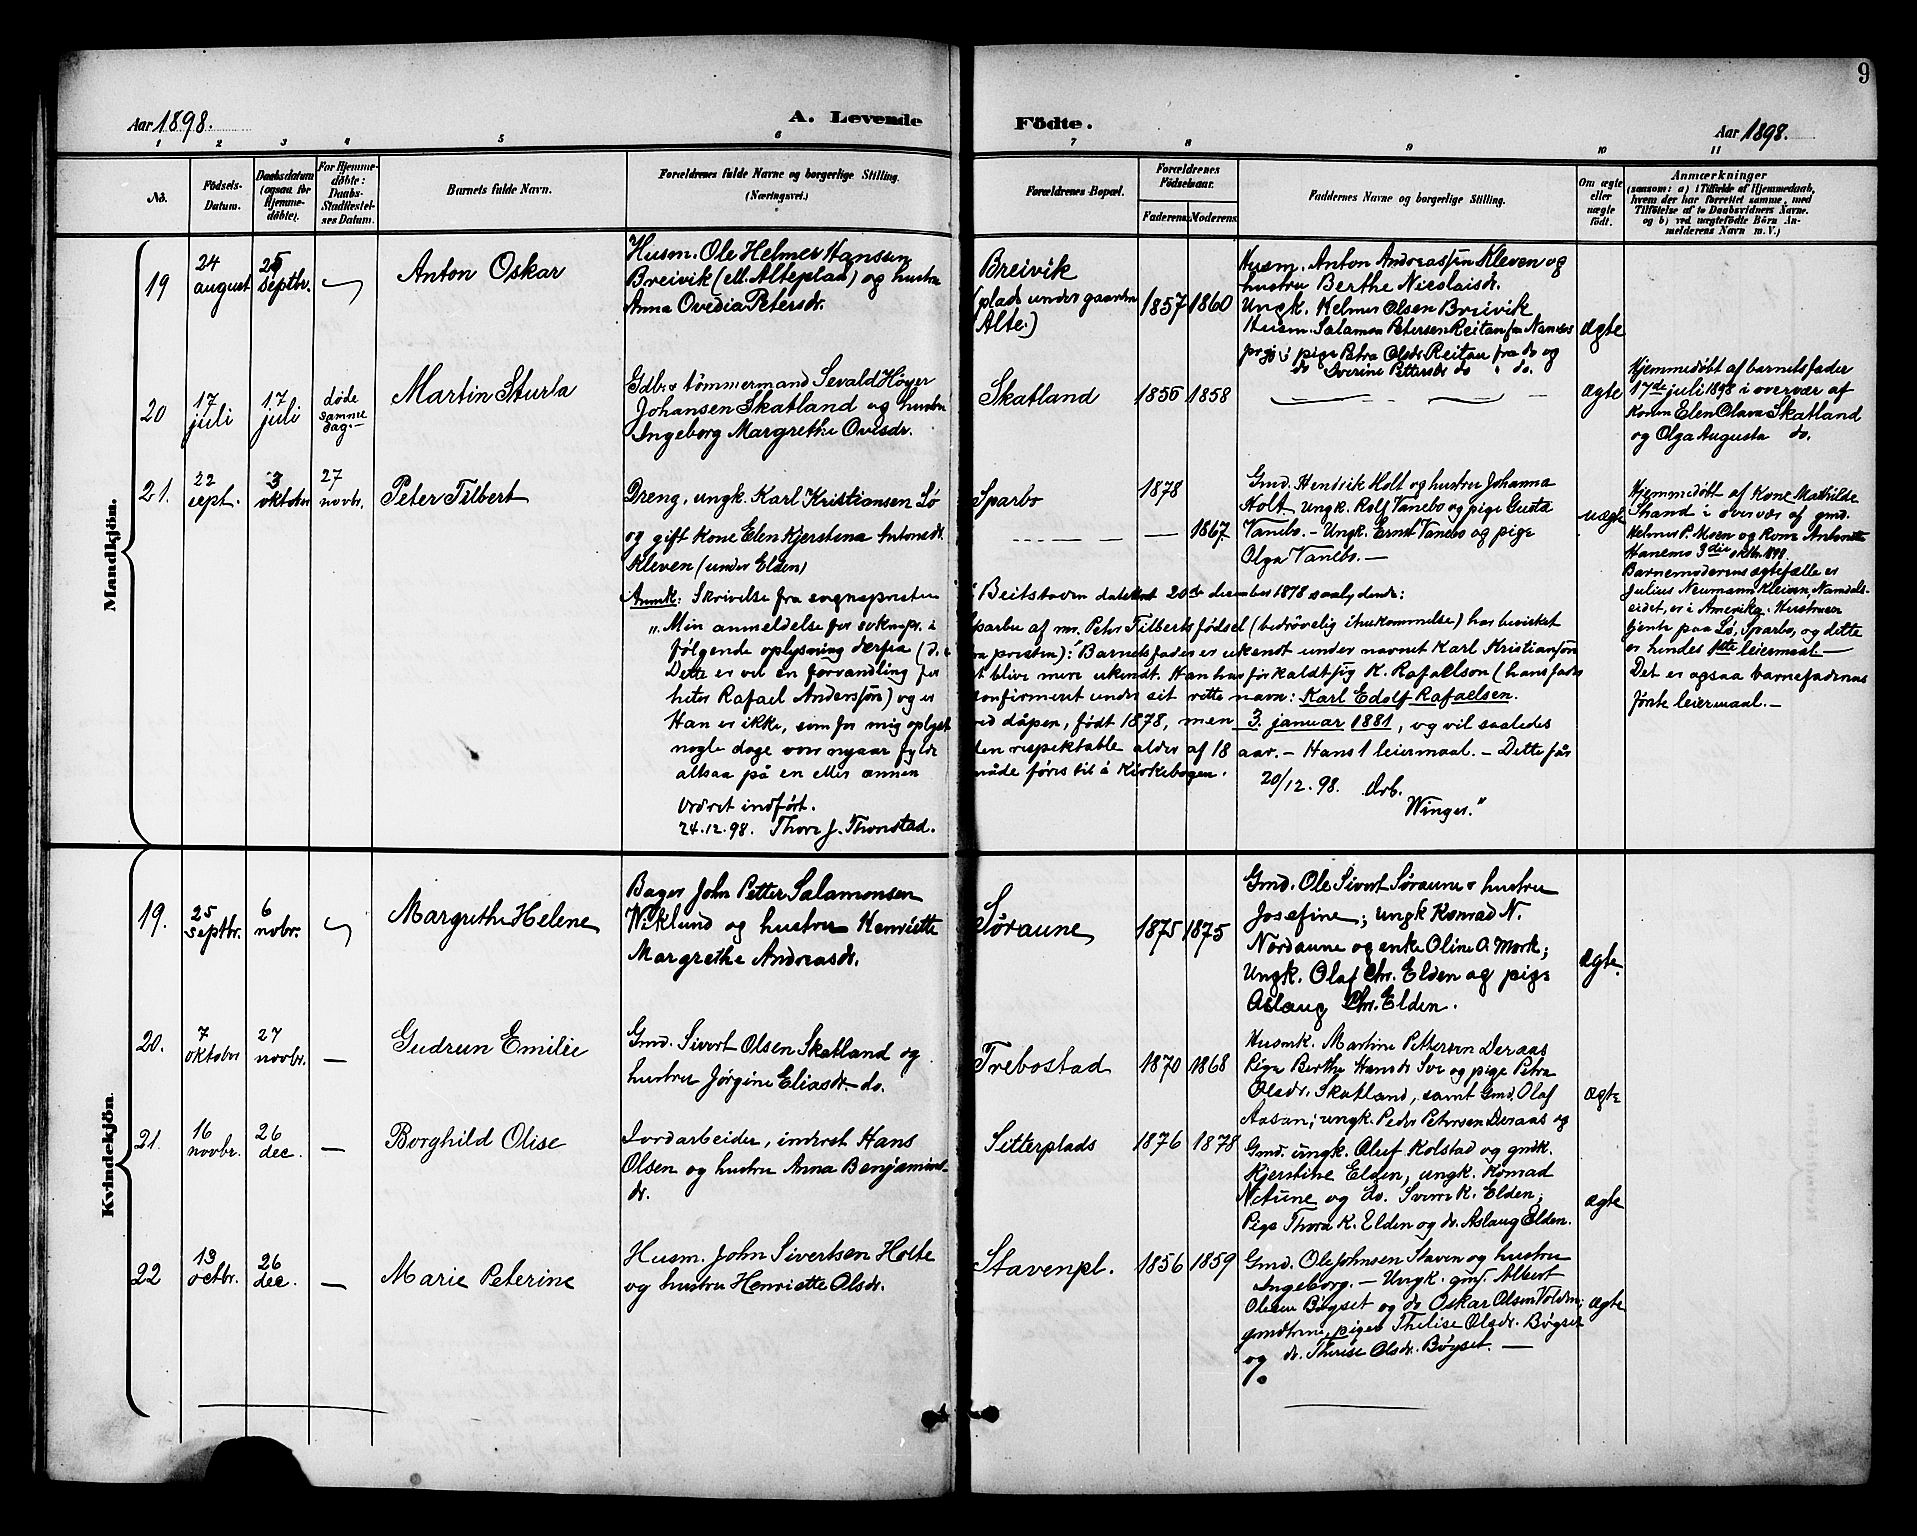 9
Aar 1898.
A. Levende Födte.
Aar 1898.
1 2 3 4 5 6 7 8 9 10 11
No.
Födsels-Datum.
Daabsdatum (ogsaa for Hjemmedöbte).
For Hjemmedöbte: Daabs-Stadfæstelses Datum.
Barnets fulde Navn.
Forældrenes fulde Navne og borgerlige Stilling. (Næringsvei.)
Forældrenes Bopæl.
Forældrenes Födselsaar.
Faderens. Moderens.
Faddernes Navne og borgerlige Stilling.
Om ægte eller uægte födt.
Anmærkninger
(saasom: a) i Tilfælde af Hjemmedaab, hvem der har forrettet samme, med Tilföielse af to Daabsvidners Navne. og b) ved uægtefödte Börn Anmelderens Navn m.V.)
Mandkjön.
19
24 august
25 septbr.
Anton Oskar
Husm. Ole Helmer Hanssen
Breivik (ell. Alteplads) og hustru
Anna Ovedia Petersdr.
Breivik
(plads under gaarden
Alte.)
1857 1860
Husm. Anton Andreassen Kleven og
hustru Berthe Nicolaisdr.
Ungk. Helmer Olsen Breivik
Husm. Salamon Petersen Reitan fra Namdos
pige Petra Olsdr. Reitan fra do og
do Sverine Pettersdr do " do.
ægte
20
17 juli
17 juli
døde samme dag.-
Martin Sturla
Gdbr. & tømmermand Sevald Høyer
Johansen Skatland og hustru
Ingeborg Margrethe Ovesdr.
Skatland
1856 1858
ægte
Hjemmedøbt af barnets fader
17de juli 1898 i overvær af
Konen Elen Olava Skatland
og Olga Augusta do.
21.
22 sept.
3 oktober
27 novbr.
Peter Tilbert
Dreng, ungk. Karl Kristiansen Lø
og gift Kone Elen Kjerstina Antonsdr.
Kleven (under Elden)
Sparbo
1878
1867
Gmd. Henrik Holt og hustru Johanna
Holt, ungk. Rolf Vanebo og pige Gusta
Vanebo. - Ungk. Ernst Vanebo og pige
Olga Vanebo. -
uægte
Hjemmedøbt af Kone Mathilde
Strand i overvær af gmd.
Helmer P. Moen og Kone Antonette
Hanemo 3die oktbr. 1898.
Barnemoderens ægtefælle er
Julius Neumann Kleven, Namdals-
eidet, er i Amerika. Hustruen
tjente paa Lø, Sparbo, og dette
er hendes 1ste leiermaal -
Det er ogsaa barnefaderens
første leiermaal. -
Anmk: Skrivelse fra sognepresten i Beitstaden dateret 20de december 1878 saalydende:
"Min anmeldelse for soknepr. i Sparbu af nr. Peter Tilberts fødsel (bedrøvelig ihukommelse) har bevirket
følgende oplysning derfra (d. e. fra presten): Barnets fader er ukendt under navnet Karl Kristiansøn
Dette er vel en forvandling for at blive mere ukendt. Han har før kaldt sig K. Rafaelson (hans fader
heter Rafael Andersøn) og er konfirmeret under sit rette navn: Karl Edolf Rafaelsen.
Han er ikke, som for mig oplyst ved dåpen, født 1878, men 3. januar 1881, og vil saaledes
nogle dage over nyaar fylde den respektable alder af 18 aar. - Hans 1 leiermaal. - Dette får
altsaa på en eller annen måde føres til å Kirkebogen.
20/12.98. Ærb.
Winger."
Ordret indført.
24.12.98. Thore J. Thonstad.
Kvindekjön.
19.
25 septbr.
6 novbr.
Margrethe Helene
Bager John Petter Salamonsen
Wiklund og hustru Henriette
Margrethe Andreasdr.
Søraune
1875 1875
Gmd. Ole Sivert Søraune & hustru
Josefine; ungk Konrad N.
Nordaune og enke Oline O. Mork;
Ungk. Olaf Chr. Elden og pige
Aslaug Chr. Elden.
ægte.
20.
7 oktober
27 novbr.
Gudrun Emilie
Gmd. Sivert Olsen Skatland og
hustru Jørgine Eliasdr. do.
Trebostad
1870 1868
Husmk. Martine Pettersen Deraas
Pige Berthe Hansdr Sve og pige Petra
Olsdr. Skatland, samt Gmd. Olaf
Aasan; ungk. Peder Petersen Deraas og
ægte
21.
16 novbr.
26 dec.
Borghild Olise
Jordarbeider, inderst Hans
Olsen og hustru Anna Benjamins-
dr.
Sitterplads
1876 1878
Gmd. ungk. Oluf Kolstad og gmk.
Kjerstine Elden, ungk. Konrad
Netune og do. Sverre K. Elden;
Pige Thora K. Elden og do. Aslaug Elden.
ægte
22
13 octbr.
26 dec.
Marie Peterine
Husm. John Sivertsen Holte
og hustru Henriette Olsdr.
Stavenpl.
1856 1859
Gmd. Ole Johnsen Staven og hustru
Ingeborg. - Ungk. gmf. Albert
Olsen Bøgset og do Oskar Olsen Volden;
gmdterne, piger Thelise Olsdr. Bøgset
og do. Therise Olsdr. Bøgset. -
ægte